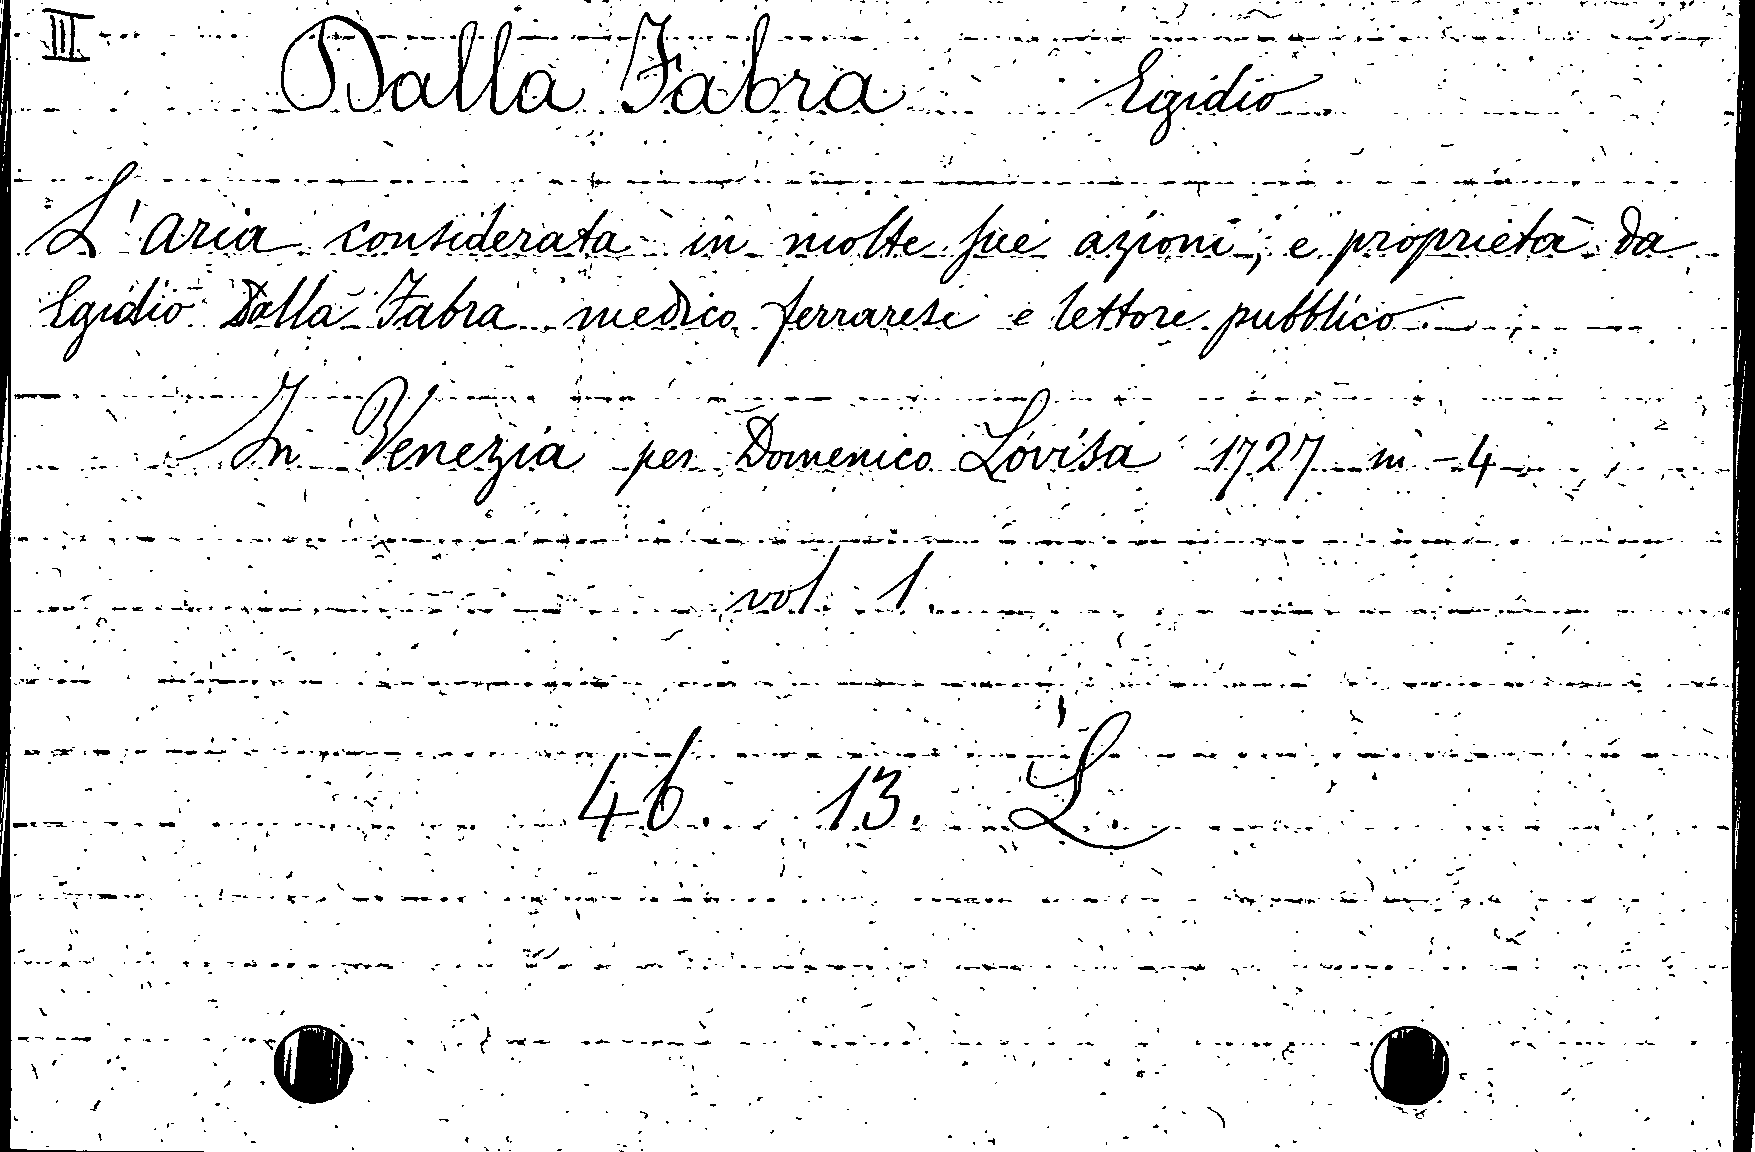 III
Dalla Fabra Egidio
L'aria considerata in molte sue azioni, e proprietà da
Egidio Dalla Fabra medico ferrarese e lettore pubblico
In Venezia per Domenico Lovisa 1727 in-4
vol. 1.
46. 13. L.